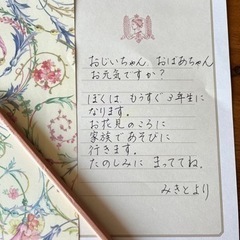 おじいちゃん おばあちゃん
お元気ですか？
ぼくは もうすぐ2年生に
なります。
お花見のころに
家族であそびに
行きます。
たのしみに まっててね。
みきとより